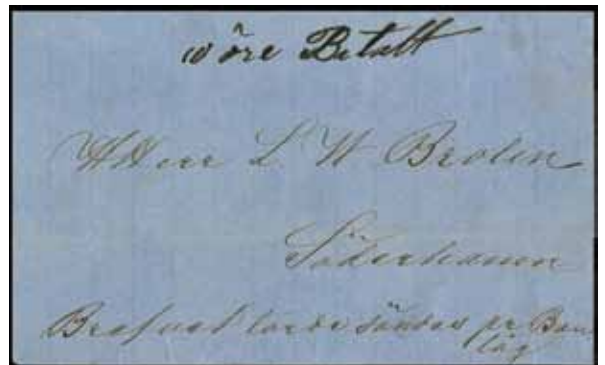 10 öre Betalt
HHerr L W Brolin
Söderhamn
Brefvet torde sändas pr Ban
tåg